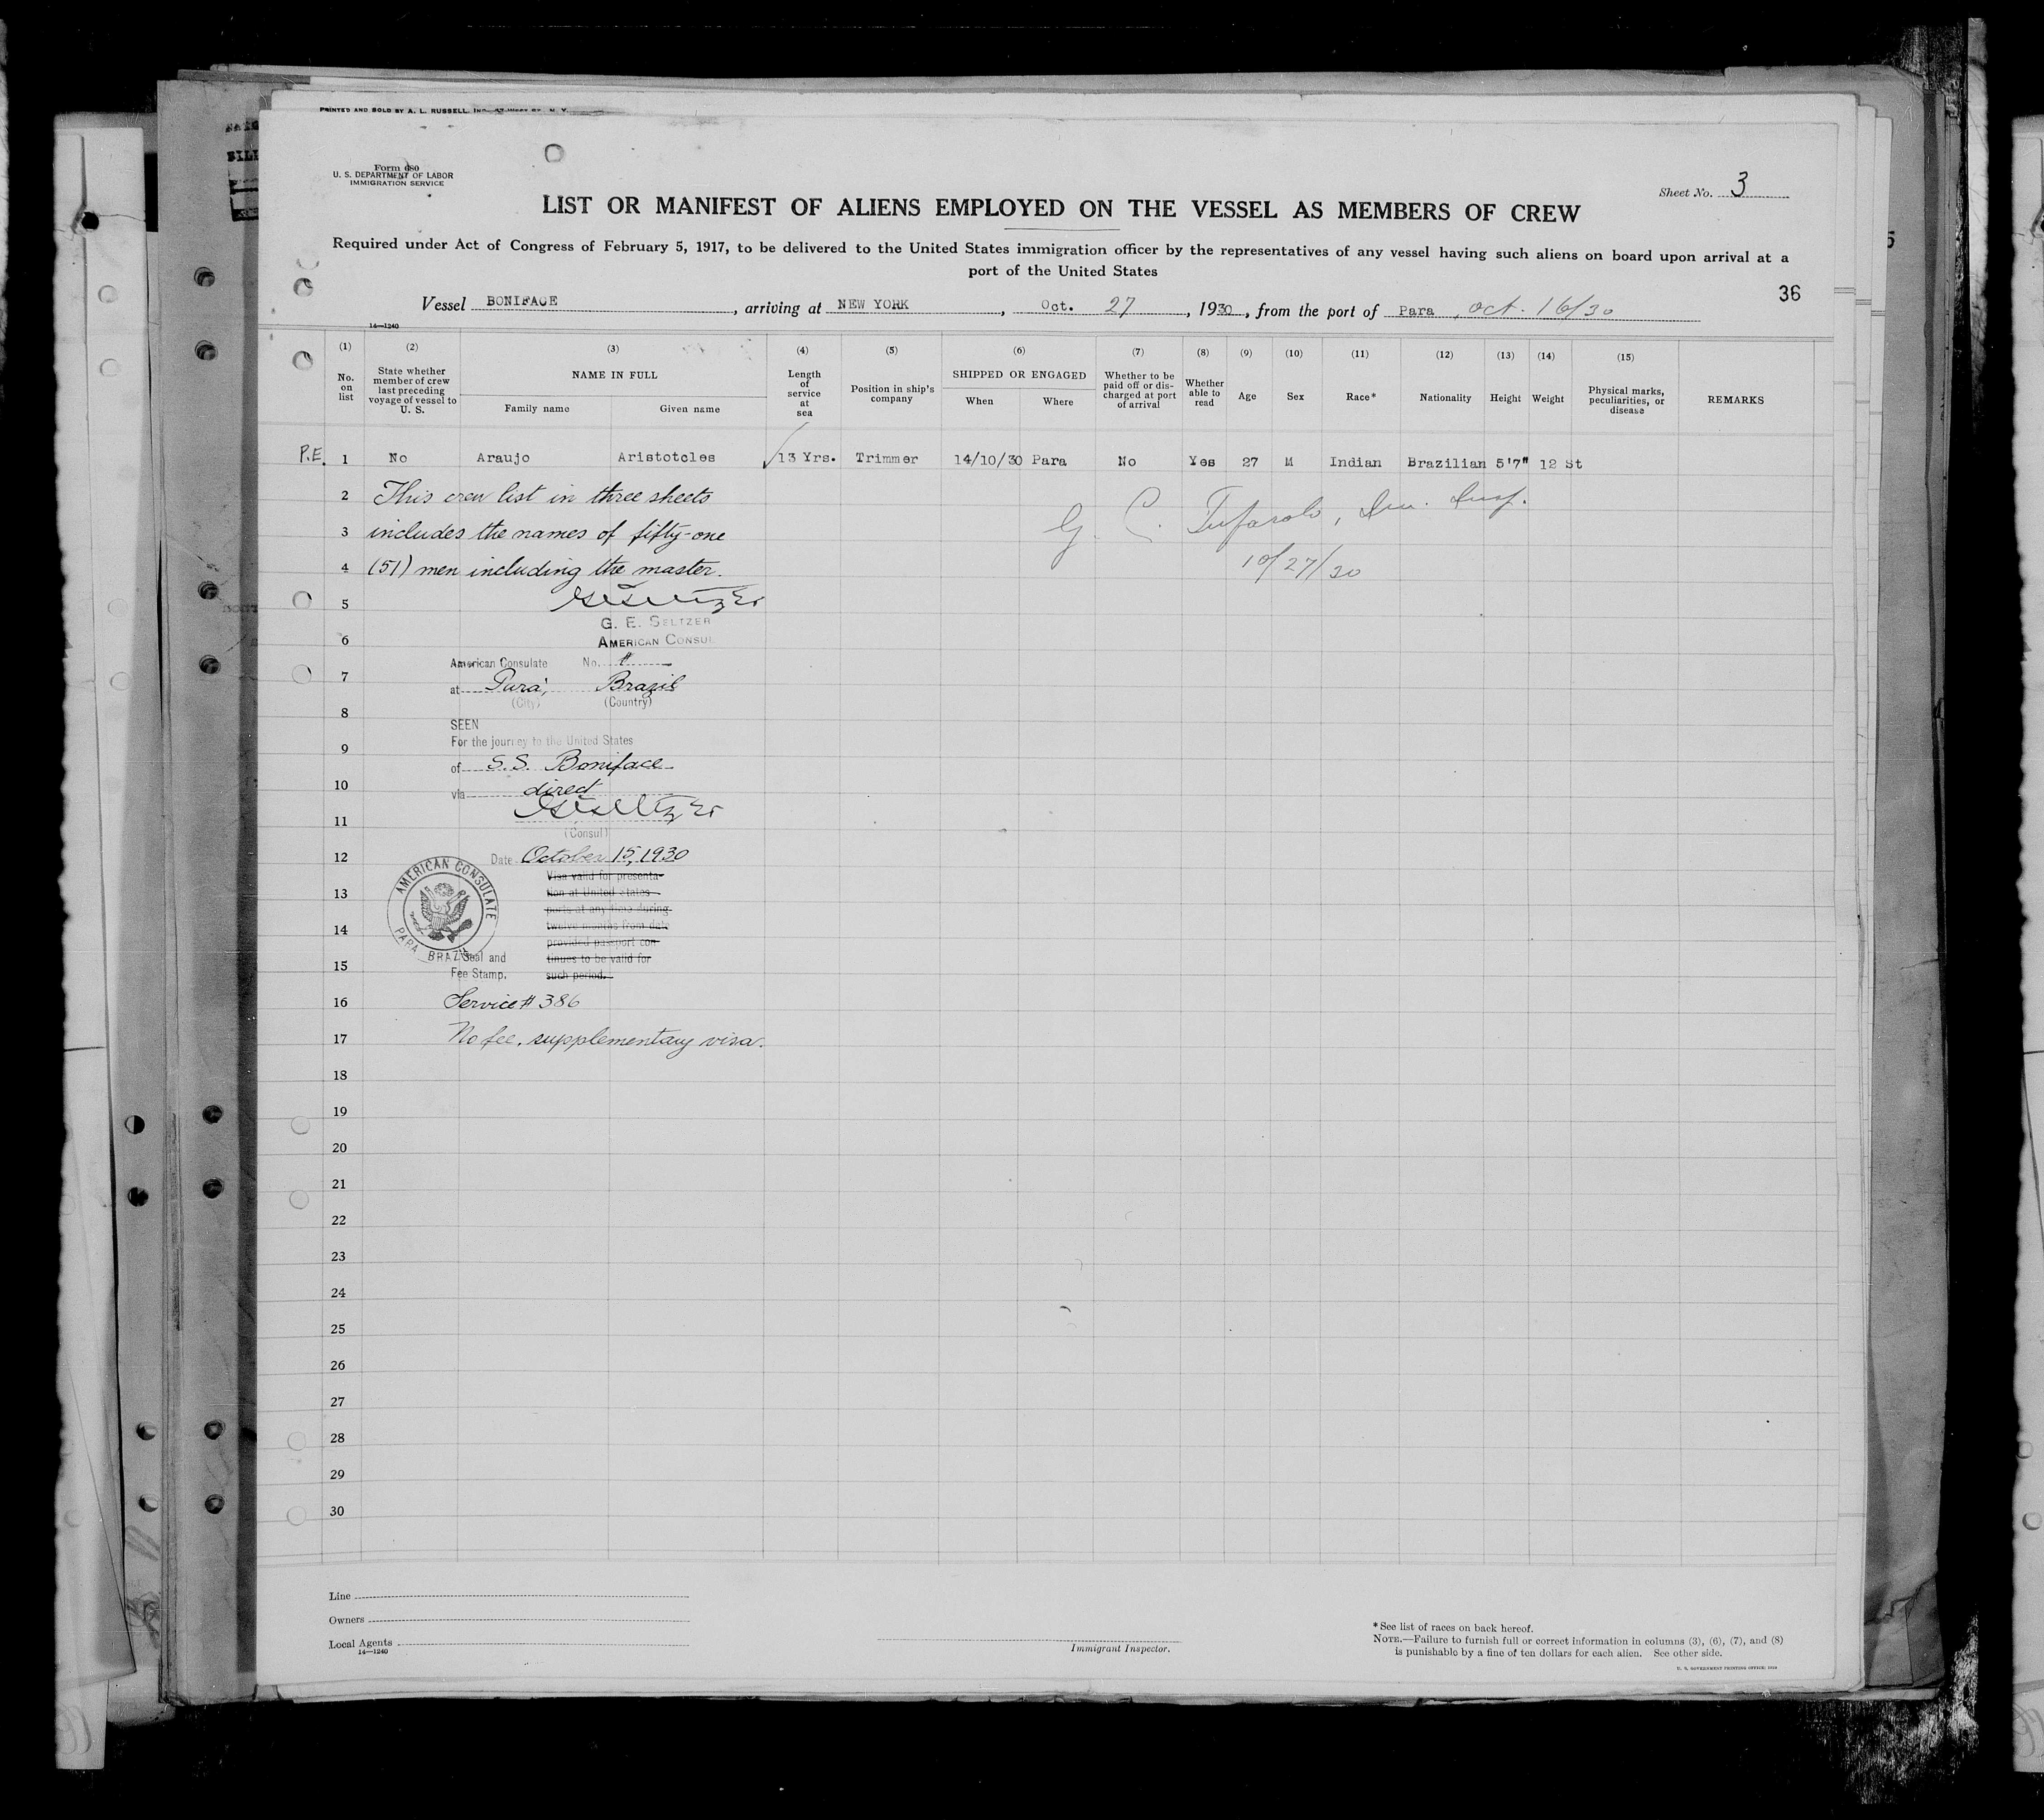 PRINTED AND SOLD BY A. L. RUSSELL, INC.
Form 680
U. S. DEPARTMENT OF LABOR
IMMIGRATION SERVICE
Sheet No. 3
LIST OR MANIFEST OF ALIENS EMPLOYED ON THE VESSEL AS MEMBERS OF CREW
Required under Act of Congress of February 5, 1917, to be delivered to the United States immigration officer by the representatives of any vessel having such aliens on board upon arrival at a
port of the United States
36
Vessel BONIFACE, arriving at NEW YORK, Oct. 27, 1930, from the port of Para, Oct. 16/30
14—1240
(1) (2) (3) (4) (5) (6) (7) (8) (9) (10) (11) (12) (13) (14) (15)
No. on list
State whether member of crew last preceding voyage of vessel to U. S.
NAME IN FULL
Family name
Given name
Length of service at sea
Position in ship's company
SHIPPED OR ENGAGED
When
Where
Whether to be paid off or discharged at port of arrival
Whether able to read
Age
Sex
Race*
Nationality
Height
Weight
Physical marks, peculiarities, or disease
REMARKS
P.E. 1 No Araujo Aristotoles 13 Yrs. Trimmer 14/10/30 Para No Yes 27 M Indian Brazilian 5'7" 12 St
2 This crew list in three sheets
3 includes the names of fifty-one
4 (51) men including the master.
G. C. Tufarolo, Imm. Insp.
10/27/30
5
G. E. SELTZER
6 AMERICAN CONSUL
American Consulate No.
7 at Pará, Brazil
(City) (Country)
8
SEEN
9 For the journey to the United States
of S.S. Boniface
10 via direct
11
(Consul)
12 Date October 15, 1930
Visa valid for presenta-
13 tion at United States
ports at any time during
14 twelve months from date
provided passport con-
15 tinues to be valid for
such period.
AMERICAN CONSULATE
PARA BRAZIL
Seal and
Fee Stamp.
16 Service # 386
17 No fee, supplementary visa.
18
19
20
21
22
23
24
25
26
27
28
29
30
Line
Owners
Local Agents
14—1240
Immigrant Inspector.
* See list of races on back hereof.
NOTE.—Failure to furnish full or correct information in columns (3), (6), (7), and (8)
is punishable by a fine of ten dollars for each alien. See other side.